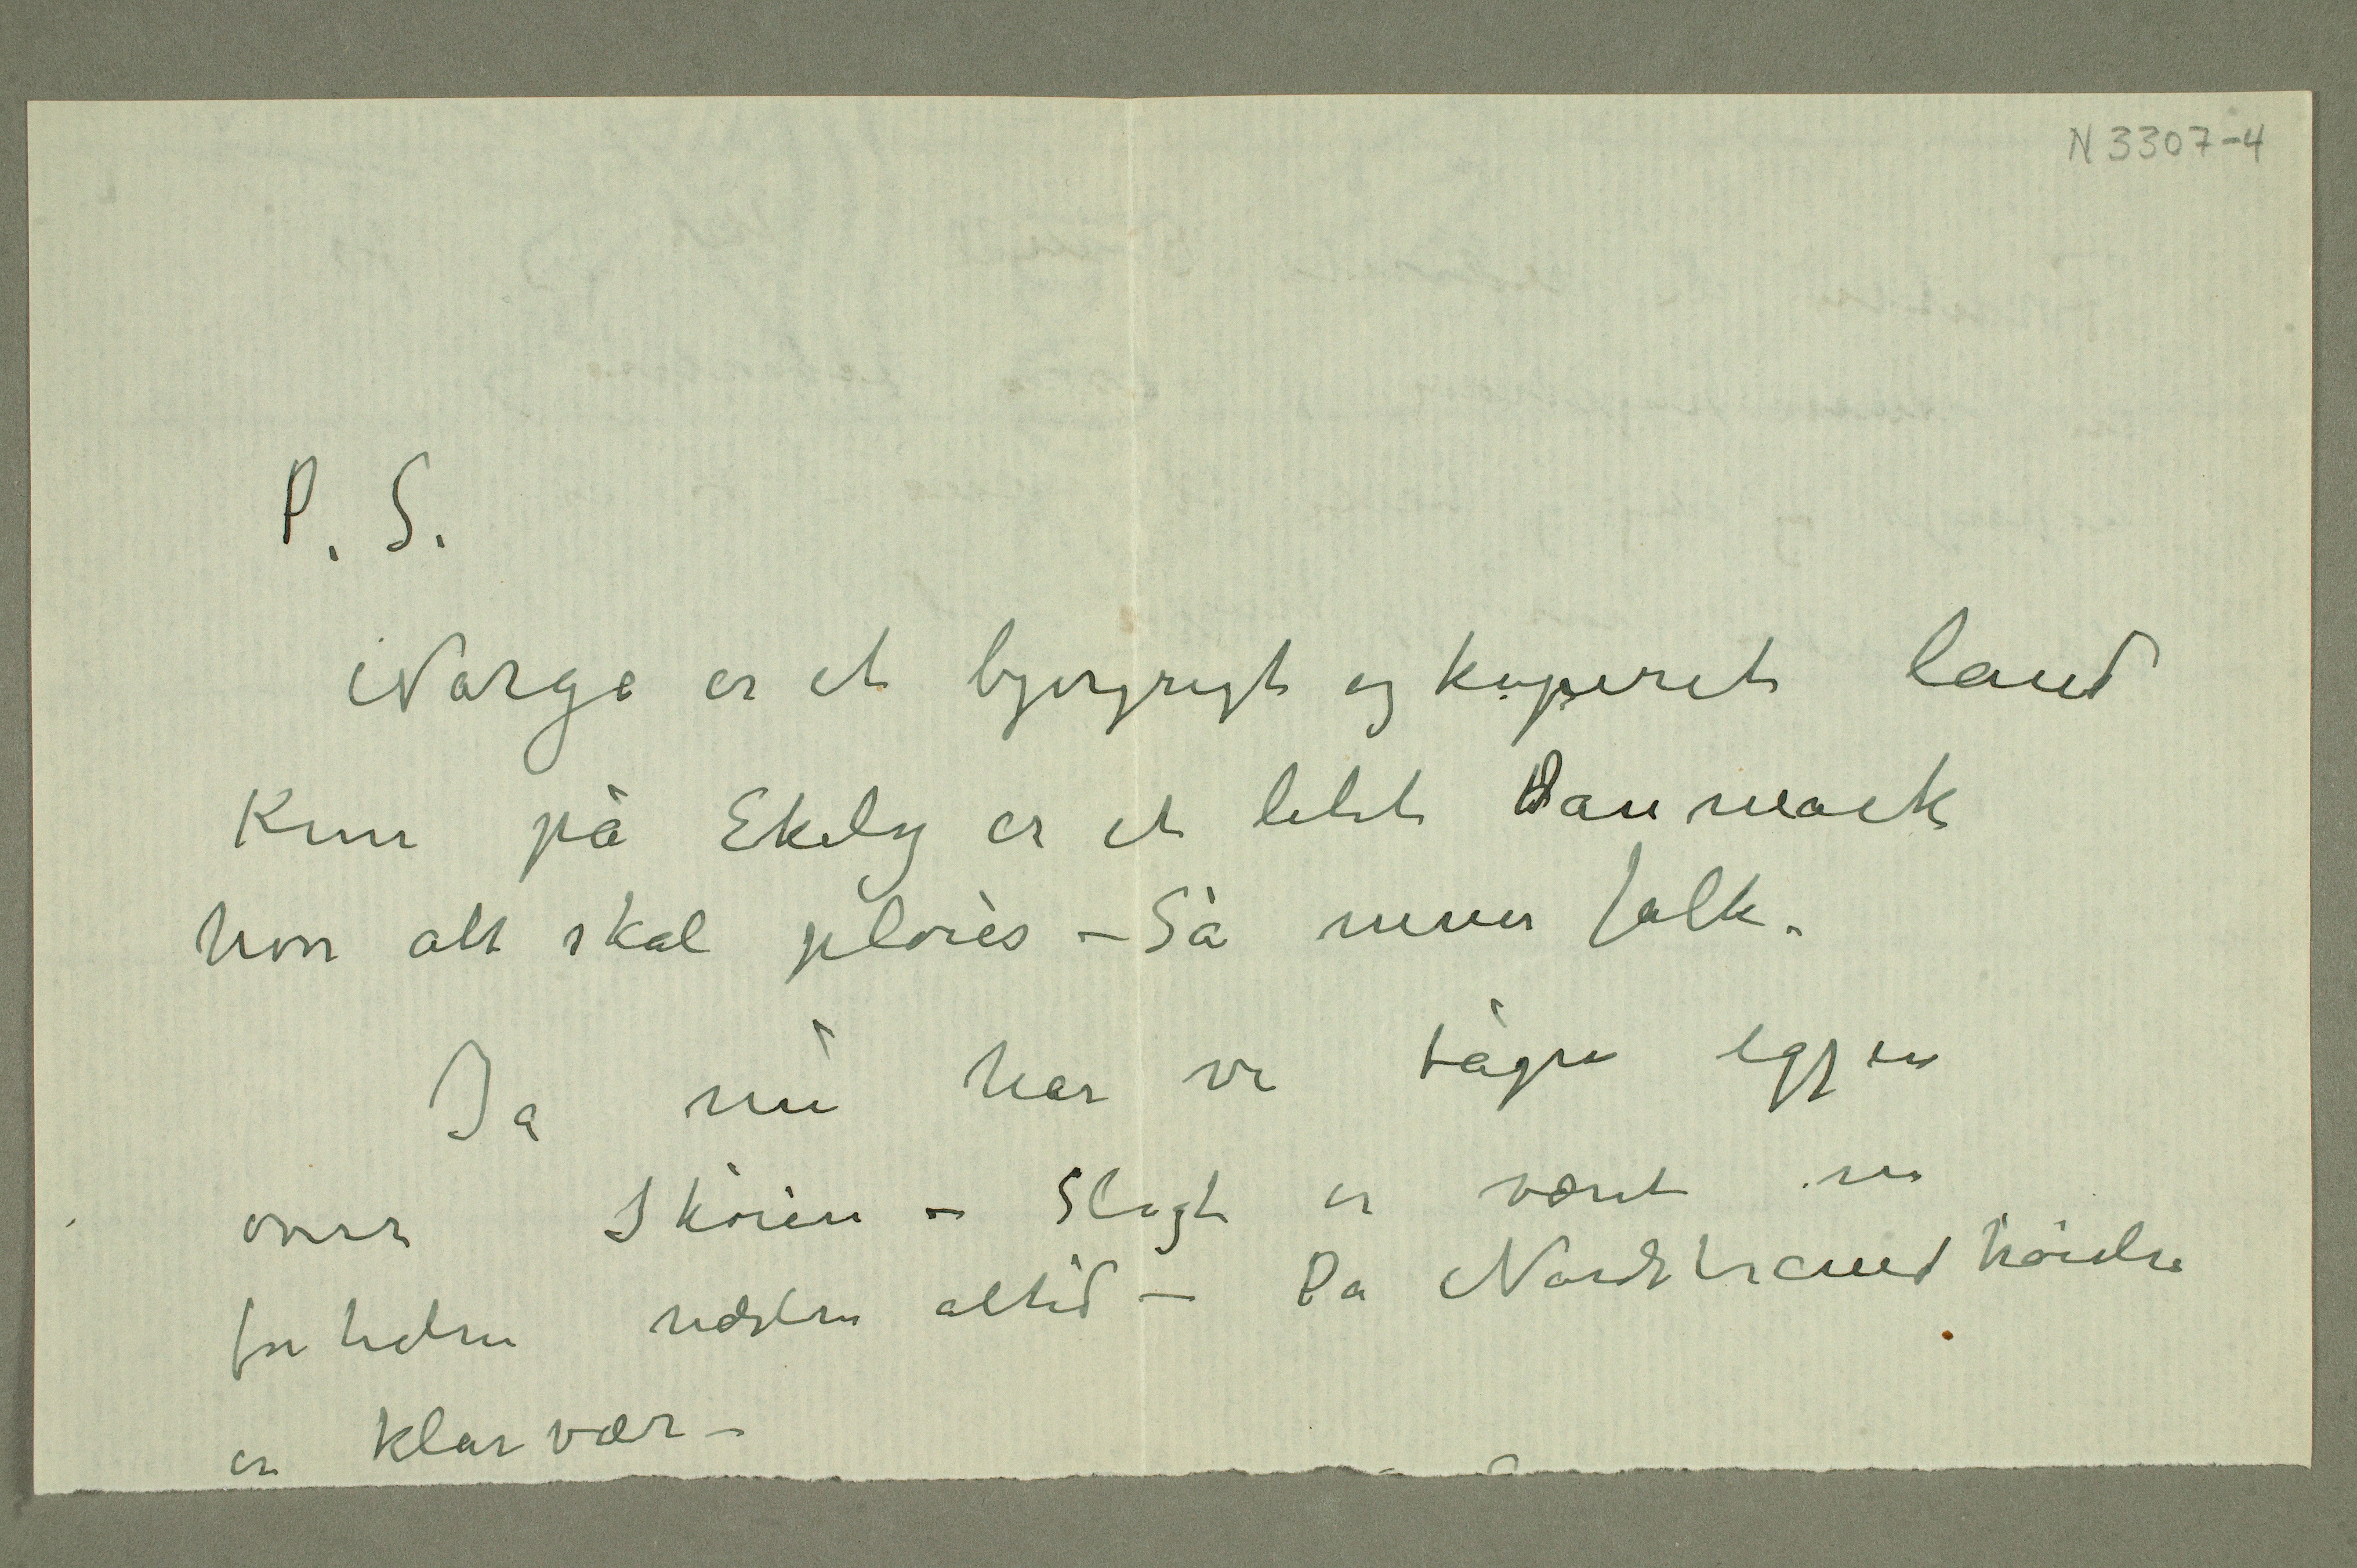 N 3307-4
P. S.
Norge er et bjergrigt og kuperet land
Kun på Ekely er et lidet Danmark
hvor alt skal pløies – Så mener folk.
Ja nu har vi tågen igjen
over Skøien – Sligt er været
forresten næsten altid – Pa Nordstrandhøiden
er klar vær –